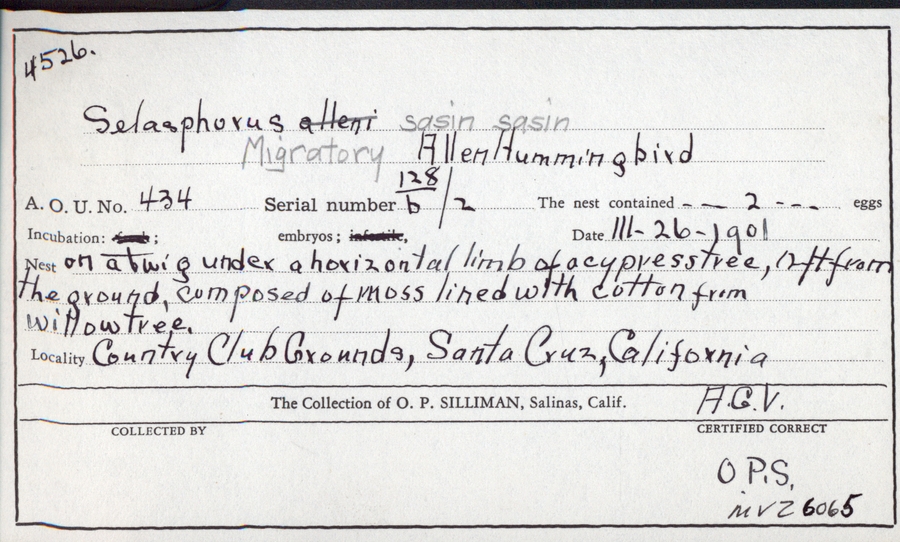 4526.
Selasphorus alleni sasin sasin
Migratory Allen Hummingbird
A. O. U. No. 434 Serial number 128 b/2 The nest contained - - 2 - - - eggs
Incubation: fresh; embryos; infertile, Date III-26-1901
Nest on a twig under a horizontal limb of a cypress tree, 12 ft from
the ground, composed of moss lined with cotton from
willow tree.
Locality Country Club Grounds, Santa Cruz, California
The Collection of O. P. SILLIMAN, Salinas, Calif. A.G.V.
COLLECTED BY CERTIFIED CORRECT
O P.S.
MVZ 6065